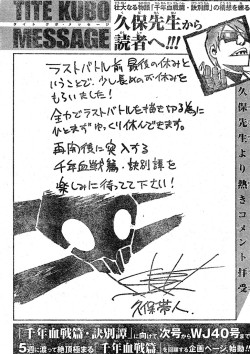 TITE KUBO
MESSAGE
タイトクボ・メッセージ
壮大なる物語「千年血戦篇・訣別譚」の構想を練る
久保先生から
読者へ!!!
久保先生より熱きコメント拝受
ラストバトル前最後の休みと
いうことで、少し長めのお休みを
もらいました!
全力でラストバトルを描き切る為に
ひとまずゆっくり休んできます。
再開後に突入する
千年血戦篇・訣別譚を
楽しみに待ってて下さい!
久保帯人.
「千年血戦篇・訣別譚」に向けて
次号からWJ40号まで
5週に渡って絶頂極まる「千年血戦篇」を回顧する企画ページ、始動